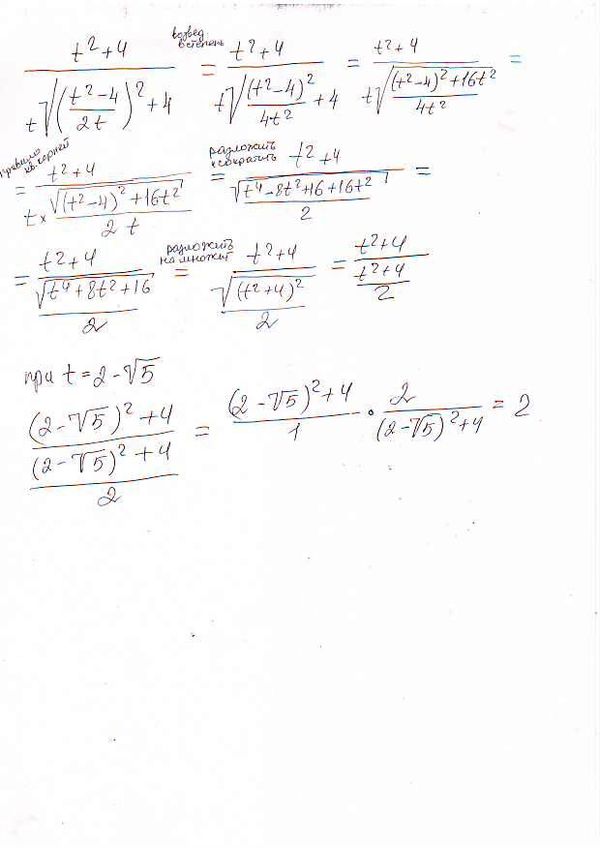 (t²+4)/(t√(((t²-4)/(2t))²+4)) = возвед. в степень (t²+4)/(t√((t²-4)²/(4t²)+4)) = (t²+4)/(t√(((t²-4)²+16t²)/(4t²))) =
правило кв. корней = (t²+4)/(t×√((t²-4)²+16t²)/(2t)) = разложить и сократить (t²+4)/(√(t⁴-8t²+16+16t²)/2) =
= (t²+4)/(√(t⁴+8t²+16)/2) = разложить на множит (t²+4)/(√((t²+4)²)/2) = (t²+4)/((t²+4)/2)
при t=2-√5
((2-√5)²+4)/(((2-√5)²+4)/2) = ((2-√5)²+4)/1 · 2/((2-√5)²+4) = 2